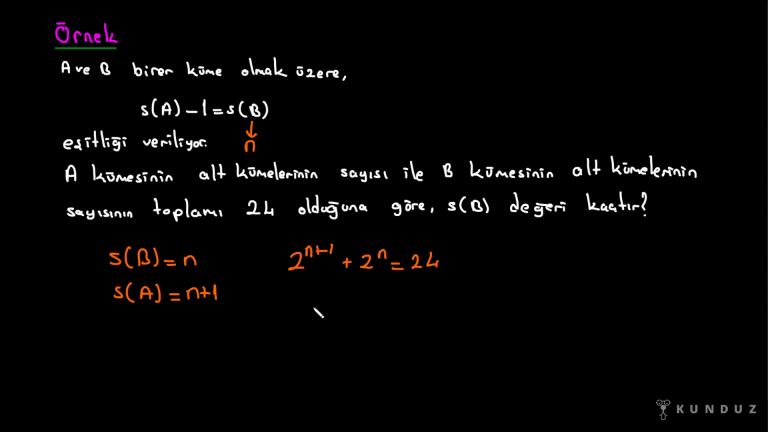 Örnek
A ve B birer küme olmak üzere,
s(A) - 1 = s(B)
eşitliği veriliyor. n
A kümesinin alt kümelerinin sayısı ile B kümesinin alt kümelerinin
sayısının toplamı 24 olduğuna göre, s(B) değeri kaçtır?
s(B) = n 2^{n+1} + 2^n = 24
s(A) = n+1
KUNDUZ